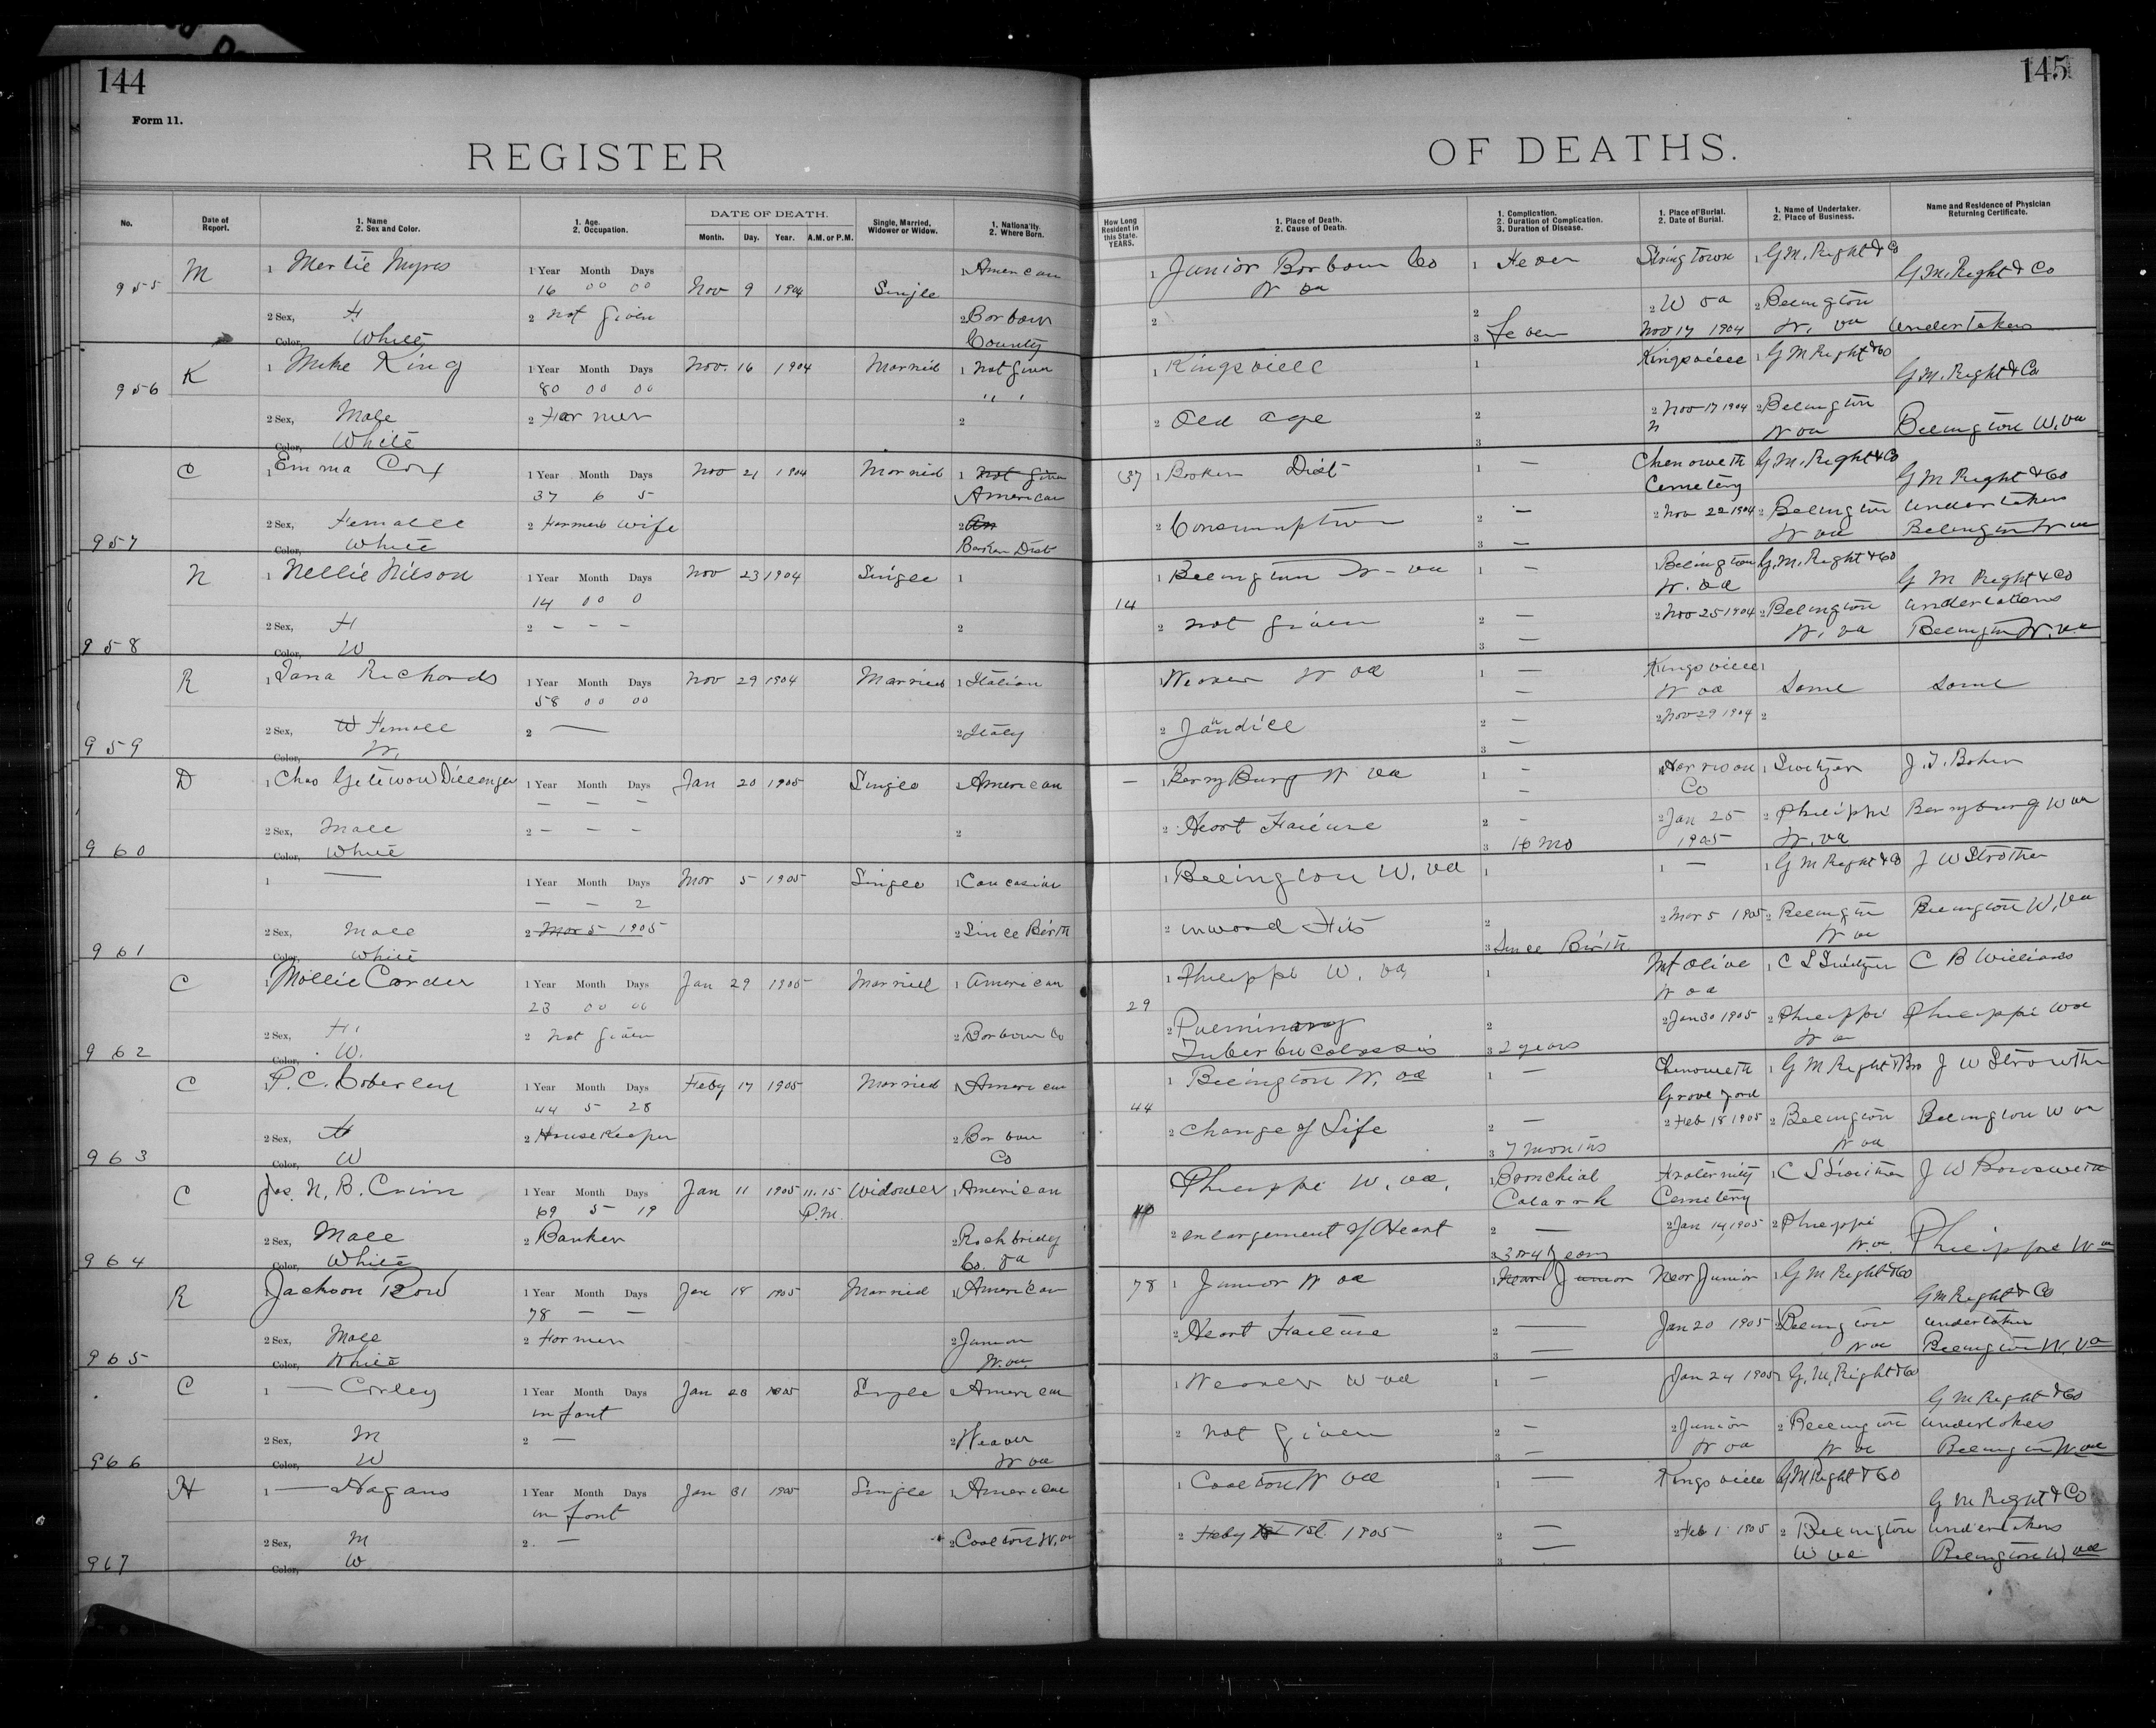 144
Form 11.
REGISTER
145
OF DEATHS.
No.
Date of Report.
1. Name
2. Sex and Color.
1. Age.
2. Occupation.
DATE OF DEATH.
Month. Day. Year. A.M. or P.M.
Single, Married, Widower or Widow.
1. Nationality.
2. Where Born.
How Long Resident in this State. YEARS.
1. Place of Death.
2. Cause of Death.
1. Complication.
2. Duration of Complication.
3. Duration of Disease.
1. Place of Burial.
2. Date of Burial.
1. Name of Undertaker.
2. Place of Business.
Name and Residence of Physician Returning Certificate.
955 M 1 Mertie Myres 1 Year Month Days Nov 9 1904 Single 1 American
16 00 00
2 Sex, F 2 not given 2 Barbour
Color, White County
1 Junior Barbour Co 1 Fever G.M. Right & Co G.M. Right & Co
W va
2 2 W va 2 Belington
3 fever Nov 17 1904 W. va undertakers
956 K 1 Mike King 1 Year Month Days Nov. 16 1904 Married 1 not given
80 00 00 " "
2 Sex, Male 2 Farmer 2
Color, White
1 Kingsville 1 Kingsville 1 G M Right & Co G.M. Right & Co
2 Old age 2 2 Nov 17 1904 2 Belington
3 W va Belington W. va
957 C 1 Emma Cox 1 Year Month Days Nov 21 1904 Married 1 not given
37 6 5 American
2 Sex, Female 2 Farmers wife 2 an
Color, White Barker Dist
(37) 1 Barker Dist 1 — Chenoweth Cemetery G.M. Right & Co G M Right & Co
2 Consumption 2 — 2 Nov 22 1904 2 Belington undertakers
3 — W va Belington W va
958 N 1 Nellie Nilson 1 Year Month Days Nov 23 1904 Single 1
14 00 0
2 Sex, F 2 — — — 2
Color, W
14 1 Belington W-va 1 — 1 Belington W. va G.M. Right & Co G M Right & Co
2 not given 2 — 2 Nov 25 1904 2 Belington undertakers
3 — W. va Belington W. va
959 R 1 Richards 1 Year Month Days Nov 29 1904 Married 1 Italian
58 00 00
2 Sex, W Female 2 — 2 Italy
Color, W.
1 Weaver W va 1 — Kingsville 1
— W va Same Same
2 Jaundice 2 — 2 Nov 29 1904 2
3 —
960 D 1 Chas 1 Year Month Days Jan 20 1905 Single 1 American
— — —
2 Sex, Male 2 — — — 2
Color, White
— 1 Berryburg W va 1 — 1 Harrison Co 1 Switzer
2 Heart Failure 2 — 2 Jan 25 2 Philippi Berryburg W va
3 16 mo 1905 W. va
961 1 — 1 Year Month Days Mar 5 1905 Single 1 Caucasian
— — 2
2 Sex, Male 2 Mar 5 1905 2 Since Birth
Color, White
1 Belington W. va 1 1 — 1 G M Right & Co J W Strother
2 inward Fits 2 2 Mar 5 1905 2 Belington Belington W. va
3 Since Birth W va
962 C 1 Mollie Carder 1 Year Month Days Jan 29 1905 Married 1 American
23 00 00
2 Sex, F 2 not given 2 Barbour Co
Color, W.
29 1 Philippi W. va 1 Mt Olive 1 C S Switzer C B Williams
W va
2 2 2 Jan 30 1905 2 Philippi Philippi W va
3 2 years W va
963 C 1 P. C. Coberley 1 Year Month Days Feby 17 1905 Married 1 American
44 5 28
2 Sex, F 2 HouseKeeper 2 Barbour
Color, W Co
44 1 Belington W. va 1 — Chenoweth 1 G M Right & Bro J W Strowther
Grove yard
2 Change of Life 2 — 2 Feb 18 1905 2 Belington Belington W va
3 7 months W va
964 C Jos. N. B. Crim 1 Year Month Days Jan 11 1905 11.15 Widower 1 American
69 5 19 P.M.
2 Sex, Male 2 Banker 2 Rockbridge
Color, White Co. Va
Philippi W. va. 1 Bronchial Fraternity 1 C S Switzer
Catarrh Cemetery
2 enlargement of Heart 2 — 2 Jan 14, 1905 2 Philippi
3 3 or 4 years W. va. Philippi W va
965 R Jackson Row 1 Year Month Days Jan 18 1905 Married 1 American
78 — —
2 Sex, Male 2 Farmer 2 Junior
Color, White W. va.
78 1 Junior W va 1 Near Junior Near Junior 1 G M Right & Co G M Right & Co
2 Heart Failure 2 — Jan 20 1905 2 Belington undertaker
3 — W va Belington W. va
966 C 1 — Corley 1 Year Month Days Jan 23 1905 Single American
infant
2 Sex, M 2 — 2 Weaver
Color, W W va
1 Weaver W va 1 — Jan 24 1905 1 G. M. Right & Co G M Right & Co
2 not given 2 — 2 Junior 2 Belington undertakers
3 — W va W va Belington W va
967 H 1 — Hagans 1 Year Month Days Jan 31 1905 Single 1 American
infant
2 Sex, M 2 — 2 Coalton W. va
Color, W
1 Coalton W va 1 — Kingsville G M Right & Co G M Right & Co
2 Feby 1st 1905 2 — 2 Feb 1 1905 2 Belington undertakers
3 — W va Belington W. va